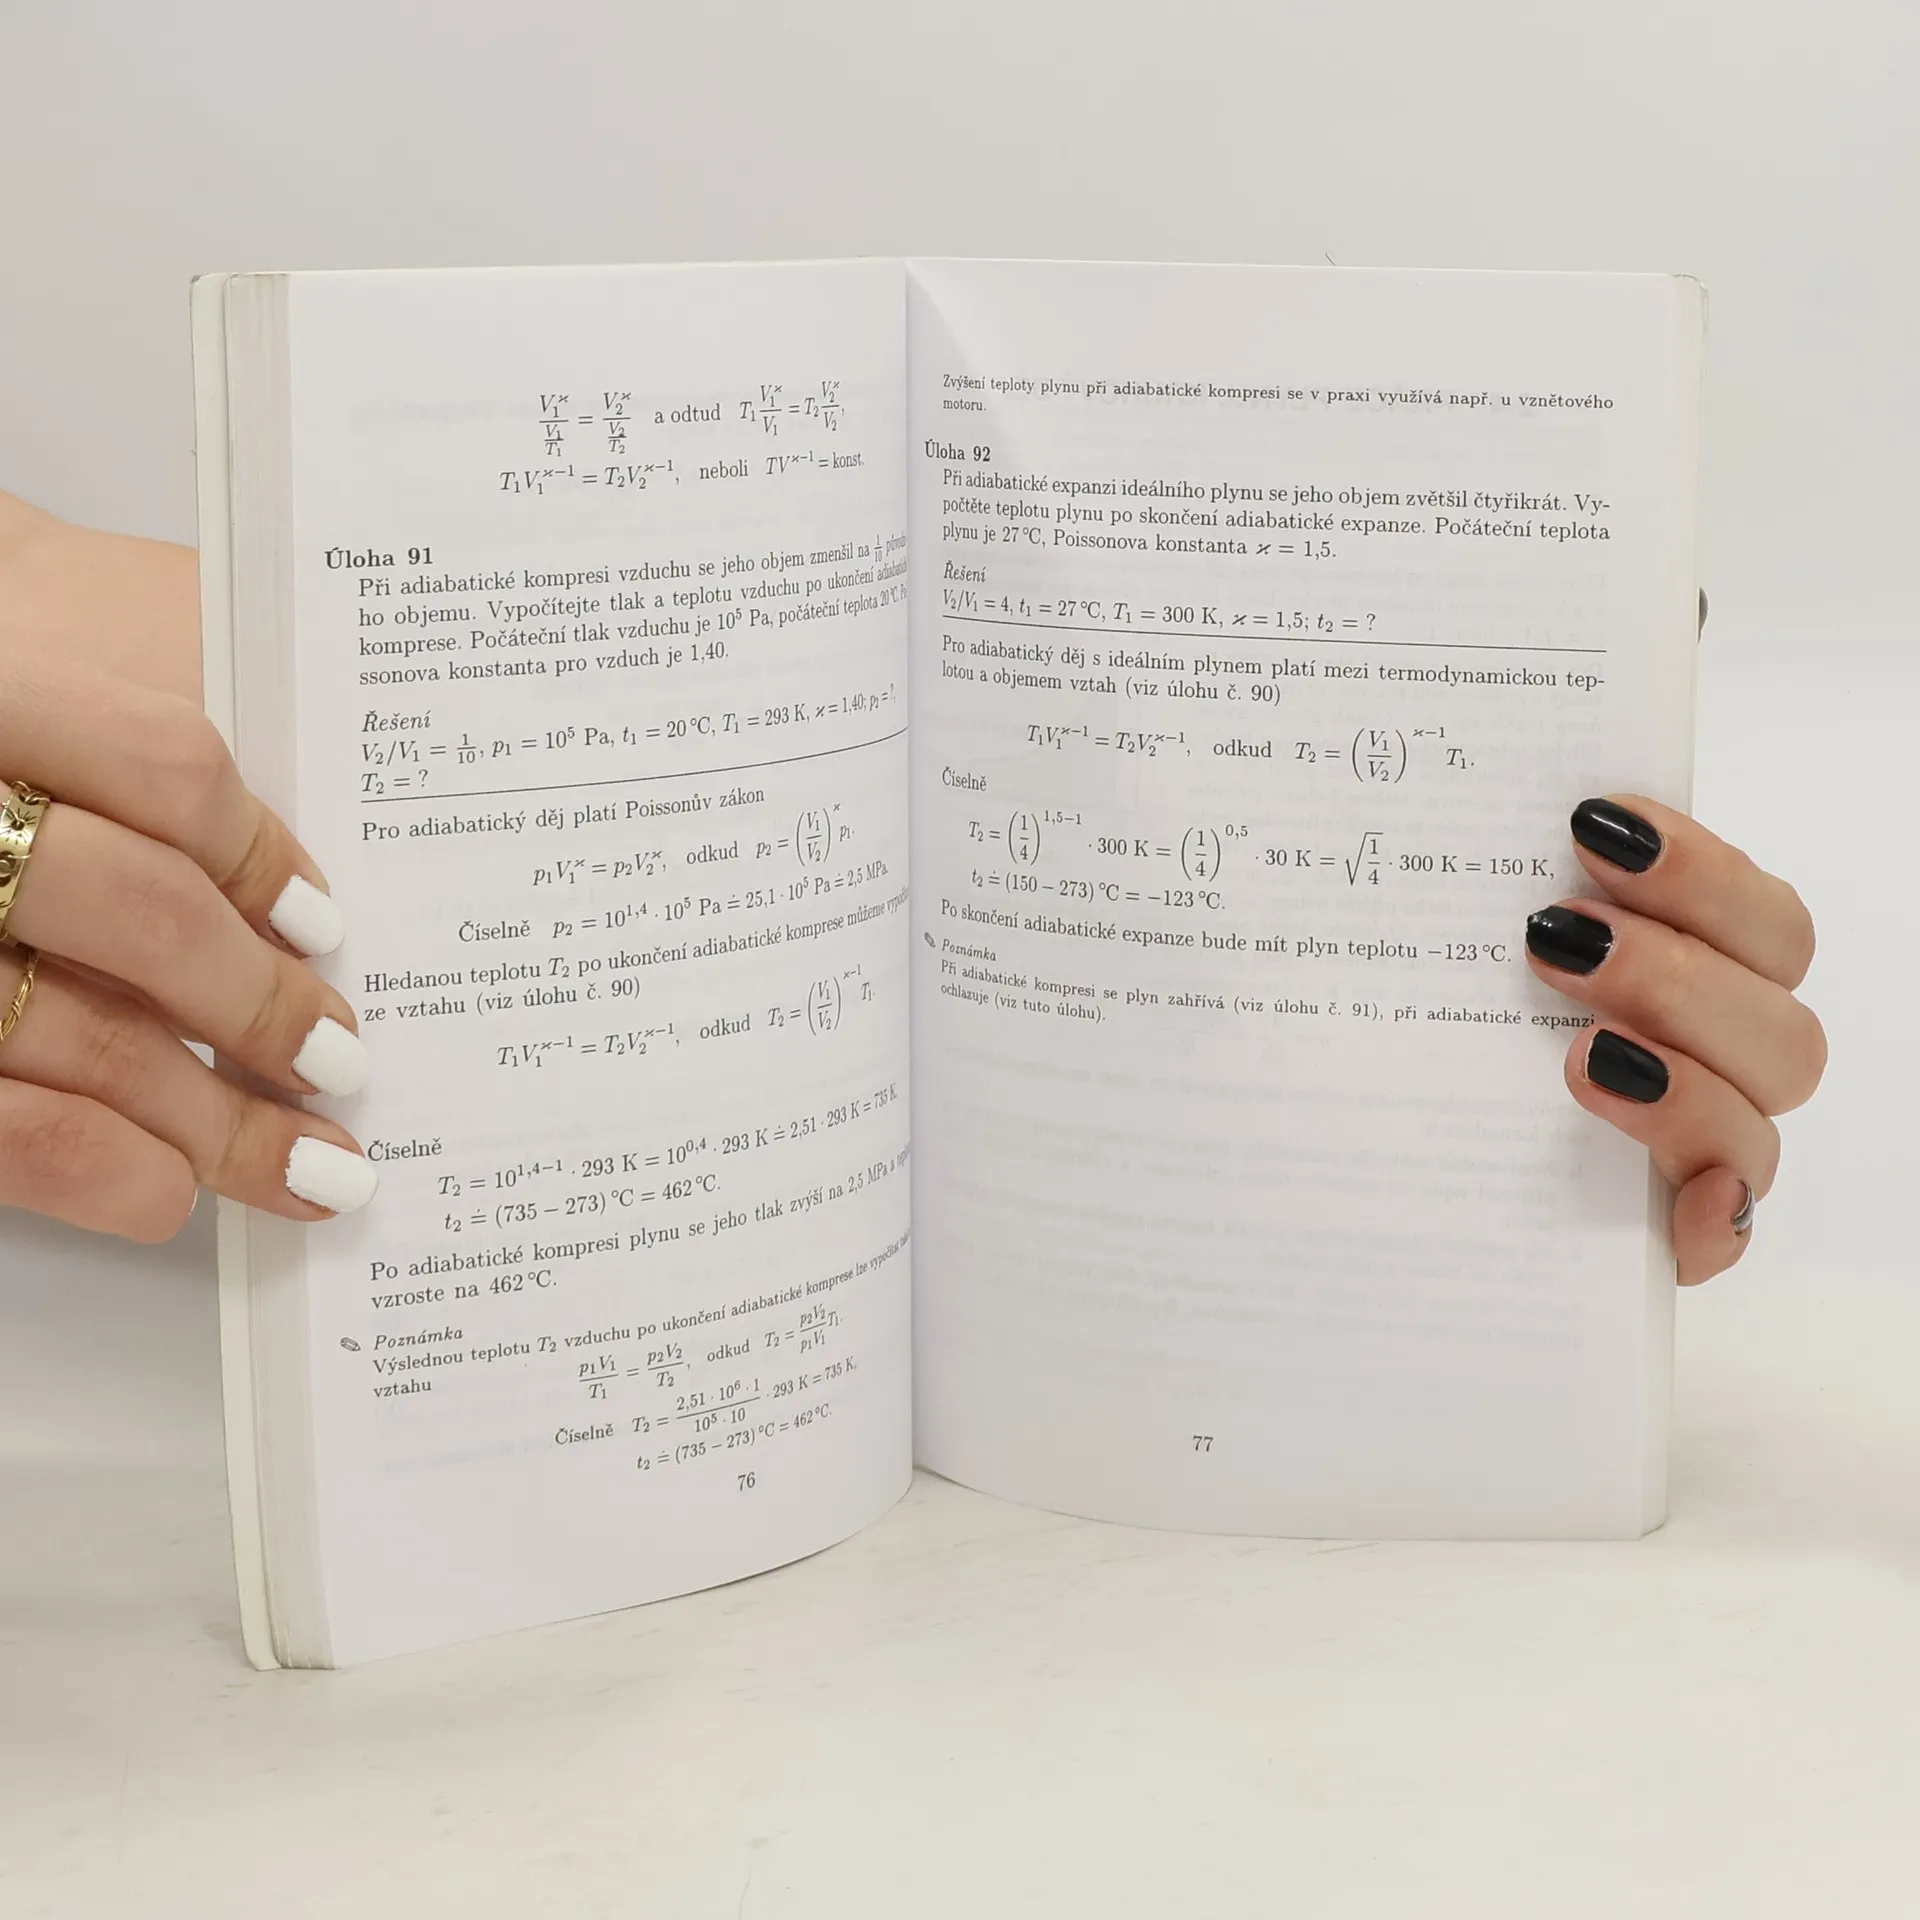 V₁^ϰ / (V₁/T₁) = V₂^ϰ / (V₂/T₂) a odtud T₁ V₁^ϰ/V₁ = T₂ V₂^ϰ/V₂,
T₁V₁^ϰ−1 = T₂V₂^ϰ−1, neboli TV^ϰ−1 = konst.
Úloha 91
Při adiabatické kompresi vzduchu se jeho objem zmenšil na 1/10
ho objemu. Vypočítejte tlak a teplotu vzduchu po ukončení
komprese. Počáteční tlak vzduchu je 10⁵ Pa, počáteční teplota 20 °C.
ssonova konstanta pro vzduch je 1,40.
Řešení
V₂/V₁ = 1/10, p₁ = 10⁵ Pa, t₁ = 20 °C, T₁ = 293 K, ϰ = 1,40; p₂ = ?,
T₂ = ?
Pro adiabatický děj platí Poissonův zákon
p₁V₁^ϰ = p₂V₂^ϰ, odkud p₂ = (V₁/V₂)^ϰ p₁.
Číselně p₂ = 10^1,4 . 10⁵ Pa ≐ 25,1 · 10⁵ Pa ≐ 2,5 MPa
Hledanou teplotu T₂ po ukončení adiabatické komprese můžeme
ze vztahu (viz úlohu č. 90)
T₁V₁^ϰ−1 = T₂V₂^ϰ−1, odkud T₂ = (V₁/V₂)^ϰ−1 T₁.
Číselně
T₂ = 10^1,4−1 . 293 K = 10^0,4 . 293 K ≐ 2,51 · 293 K = 735 K.
t₂ ≐ (735 − 273) °C = 462 °C.
Po adiabatické kompresi plynu se jeho tlak zvýší na 2,5 MPa a
vzroste na 462 °C.
✎ Poznámka
Výslednou teplotu T₂ vzduchu po ukončení adiabatické komprese lze vypočítat
vztahu
p₁V₁/T₁ = p₂V₂/T₂, odkud T₂ = p₂V₂/p₁V₁ T₁.
Číselně T₂ = 2,51 · 10⁶ · 1 / 10⁵ · 10 · 293 K = 735 K,
t₂ ≐ (735 − 273) °C = 462 °C.
76
Zvýšení teploty plynu při adiabatické kompresi se v praxi využívá např. u vznětového
motoru.
Úloha 92
Při adiabatické expanzi ideálního plynu se jeho objem zvětšil čtyřikrát. Vy-
počtěte teplotu plynu po skončení adiabatické expanze. Počáteční teplota
plynu je 27 °C, Poissonova konstanta ϰ = 1,5.
Řešení
V₂/V₁ = 4, t₁ = 27 °C, T₁ = 300 K, ϰ = 1,5; t₂ = ?
Pro adiabatický děj s ideálním plynem platí mezi termodynamickou tep-
lotou a objemem vztah (viz úlohu č. 90)
T₁V₁^ϰ−1 = T₂V₂^ϰ−1, odkud T₂ = (V₁/V₂)^ϰ−1 T₁.
Číselně
T₂ = (1/4)^1,5−1 · 300 K = (1/4)^0,5 · 30 K = √(1/4) · 300 K = 150 K,
t₂ ≐ (150 − 273) °C = −123 °C.
Po skončení adiabatické expanze bude mít plyn teplotu −123 °C.
✎ Poznámka
Při adiabatické kompresi se plyn zahřívá (viz úlohu č. 91), při adiabatické expanzi
ochlazuje (viz tuto úlohu).
77